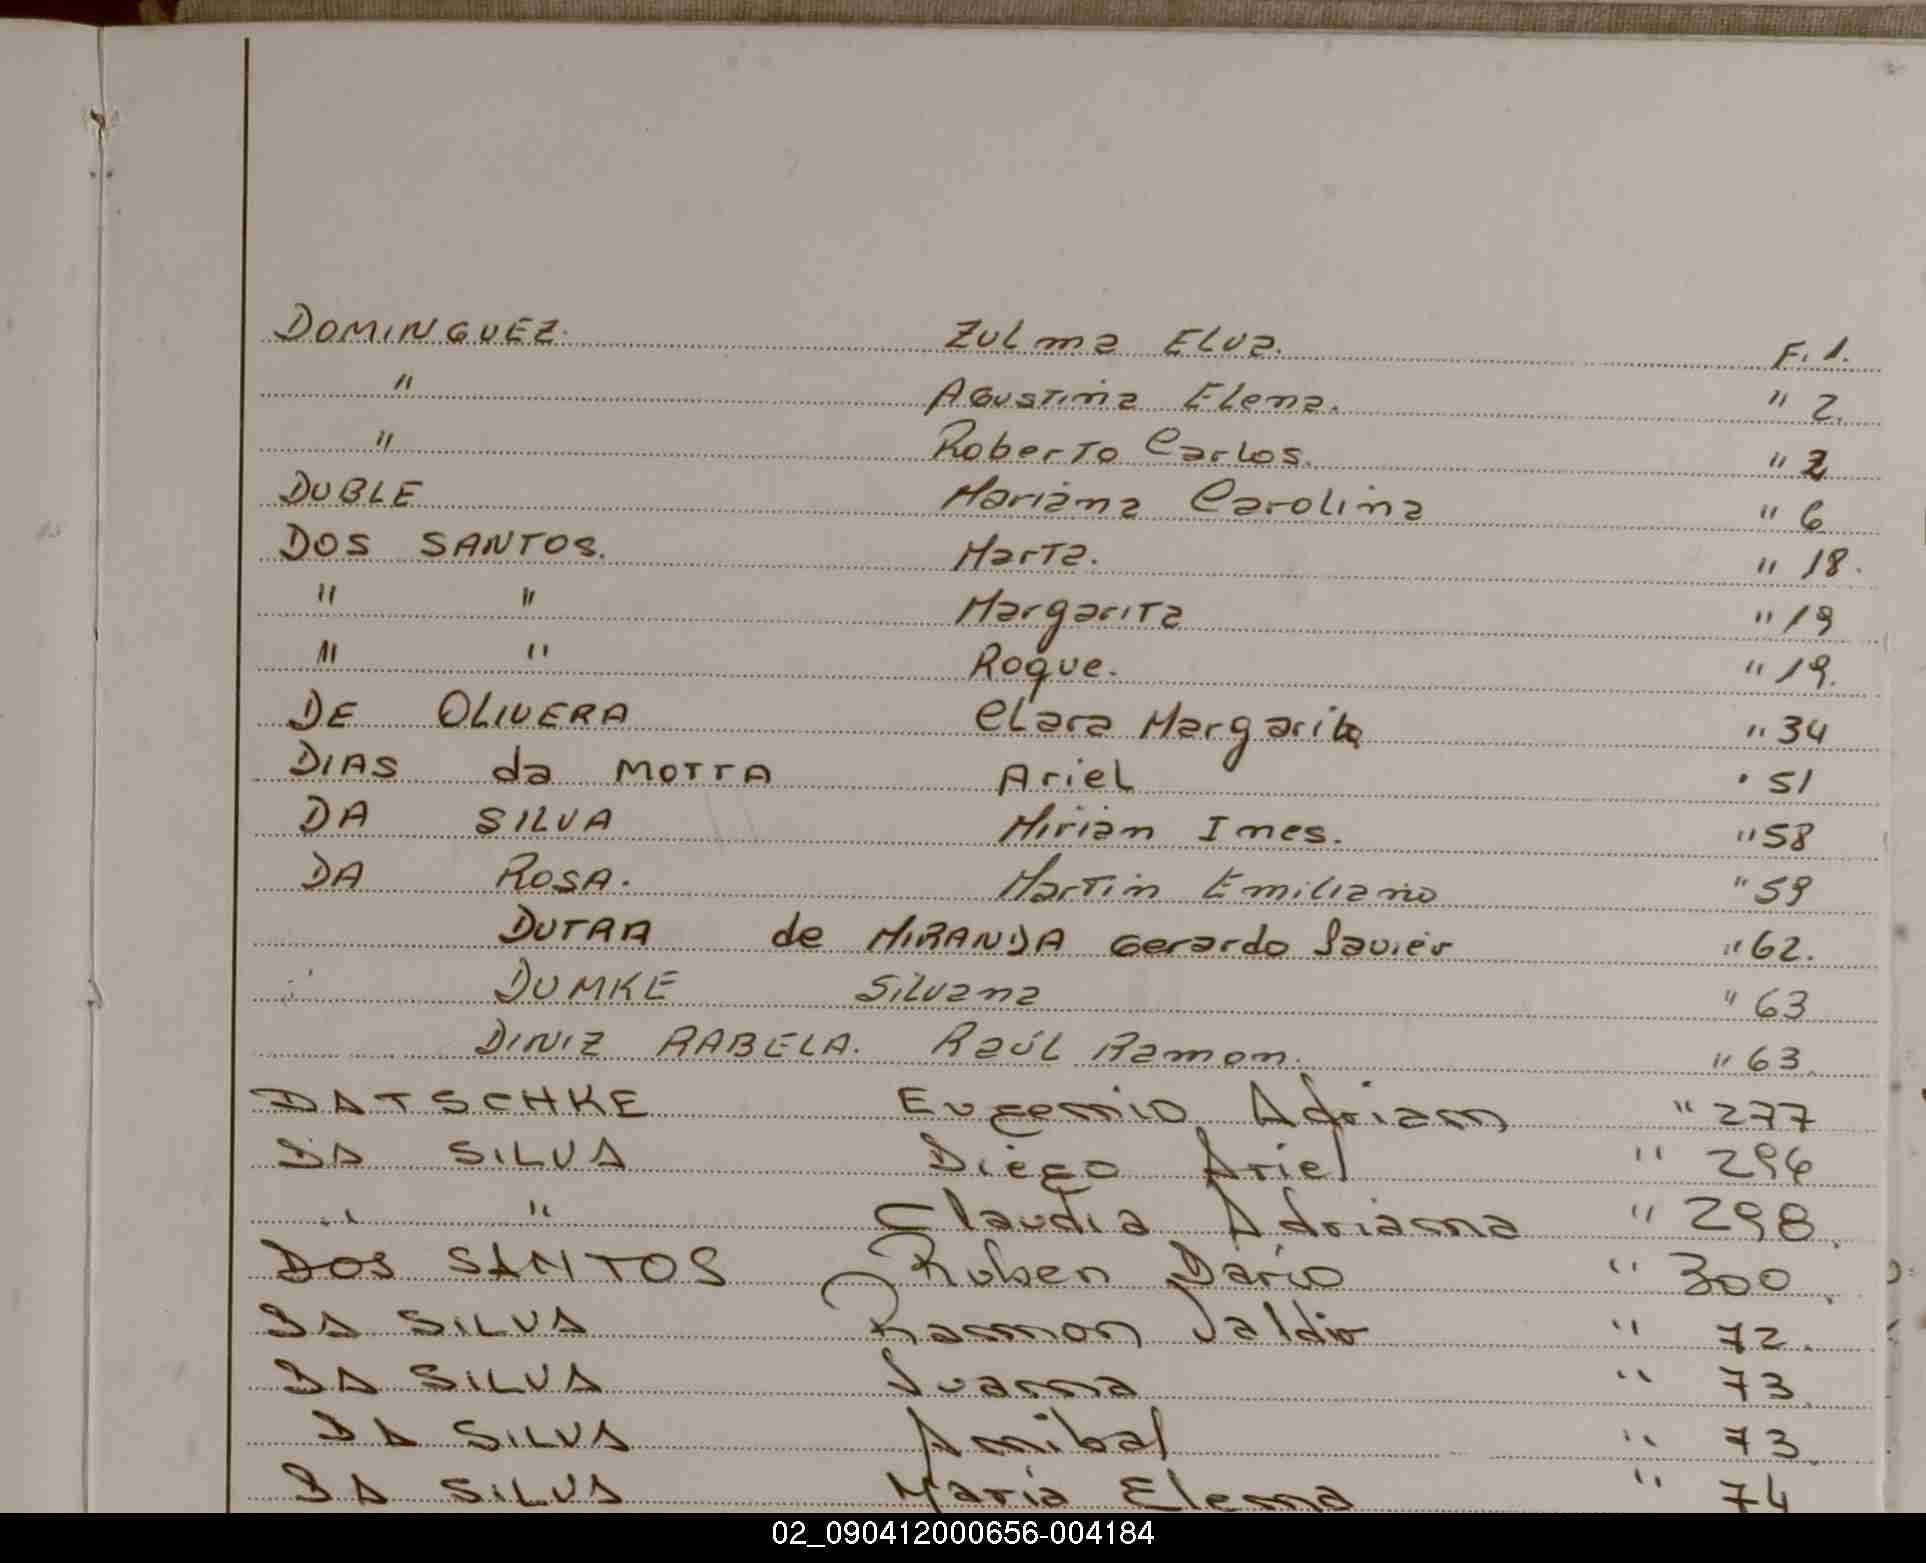 DOMINGUEZ. Zulma Elva. F. 1.
" Agustina Elena. " 2.
" Roberto Carlos. " 2
DUBLE Mariana Carolina " 6
DOS SANTOS. Marta. " 18.
" " Margarita " 19
" " Roque. " 19.
DE OLIVERA Clara Margarita " 34
DIAS da MOTTA Ariel " 51
DA SILVA Mirian Ines. " 58
DA ROSA. Martin Emiliano " 59
DUTRA de MIRANDA Gerardo Javier " 62.
DUMKE Silvana " 63
DINIZ RABELA. Raúl Ramon. " 63
DATSCHKE Eugenio Adrian " 277
DA SILVA Diego Ariel " 296
" " Claudia Adriana " 298.
DOS SANTOS Ruben Dario " 300.
DA SILVA Ramon Valdir " 72.
DA SILVA Juana " 73.
DA SILVA Anibal " 73.
DA SILVA Maria Elena " 74
02_090412000656-004184